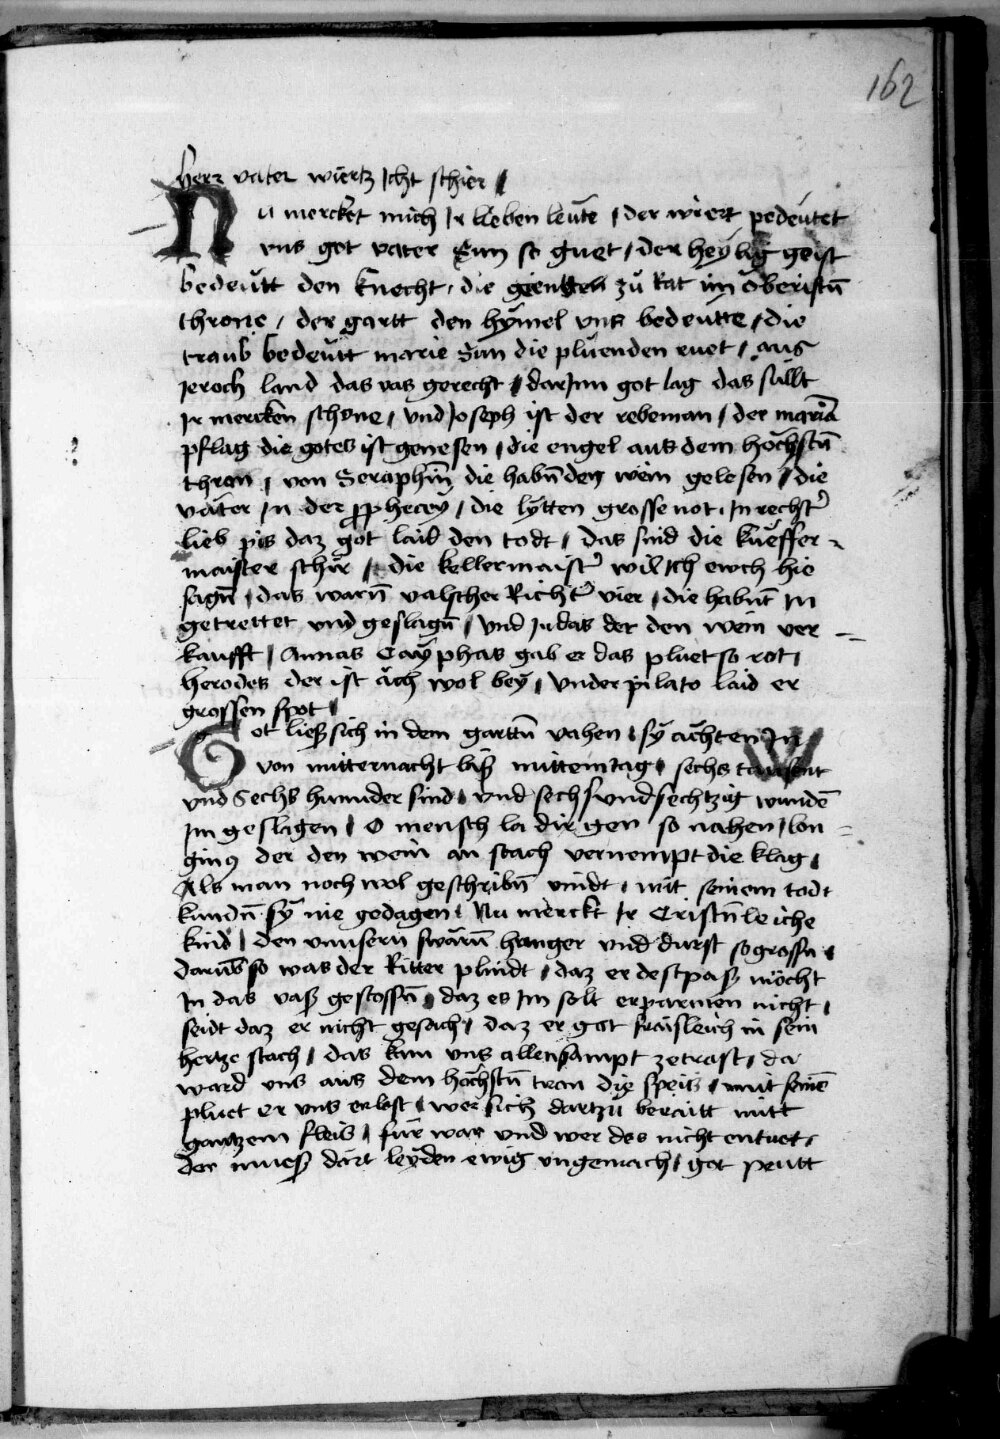 162
herr vater wiertz Icht schier
Nu mercket mich Ir lieben leüte / der wiert pedeütet
vns got vater Sun so guet / der heylig geist
bedeütt den knecht / die giengen zu Rat im öberistn̄
throne / der gartt den hymel vns bedeütte / die
traub bedeütt marie Sun die plüenden ruet / aus
Jeroch land das vas gerecht / darJnn got lag das süllt
Ir mercken schone / vnd Joseph ist der rebeman / der maria
pflag die gotes ist genesen / die engel aus dem höchstn̄
thron / von Seraphin die habn̄ den wein gelesen / die
väter In der prophecey / die lytten grosse not / In rechtsr̄
lieb pis daz got laid den todt / das sind die küeffer
maister schir / die kellermaistr̄ wil Ich ewch hie
sagn̄ / das warn̄ valscher Richtr̄ vier / die habnt In
getrettet vnd geslagn̄ / vnd Judas der den wein ver
kaufft / Annas Cayphas gab er das pluet so rot /
herodes der ist ach wol bey / vnder pilato laid er
grossen spot /
Got liess sich in dem gartn̄ vahen / sy achten In
von mitternacht bis mittemtag / sechs tawsent
vnd Sechs hunnder sind / vnd sechsvndsechtzig wunden
Im geslagen / O mensch la dir gen so nahen / lon
ginus der den wein an stach vernempt die klag /
Als man noch wol geschribn̄ vindt / mit seinem todt
kundn̄ sy nie gedagen / Nu merckt Ir Cristnleiche
kind / den vnnsern swärn̄ hunger vnd durst so grossn /
darūb so was der Ritter plindt / daz er destpas möcht
In das vas gestossn̄ / daz es Im solt erparmen nicht /
seidt daz er nicht gesach / daz er got sein
hertze stach / das kam vns allensampt zetrost / da
ward vns aus dem höchstn̄ tran die speis / mit seinē
pluet er vns erlost / wer sich dartzu beraitt mitt
gantzem fleis / für war vnd wer des nicht entuet /
der mues dart leyden ewig vngemach / got peutt